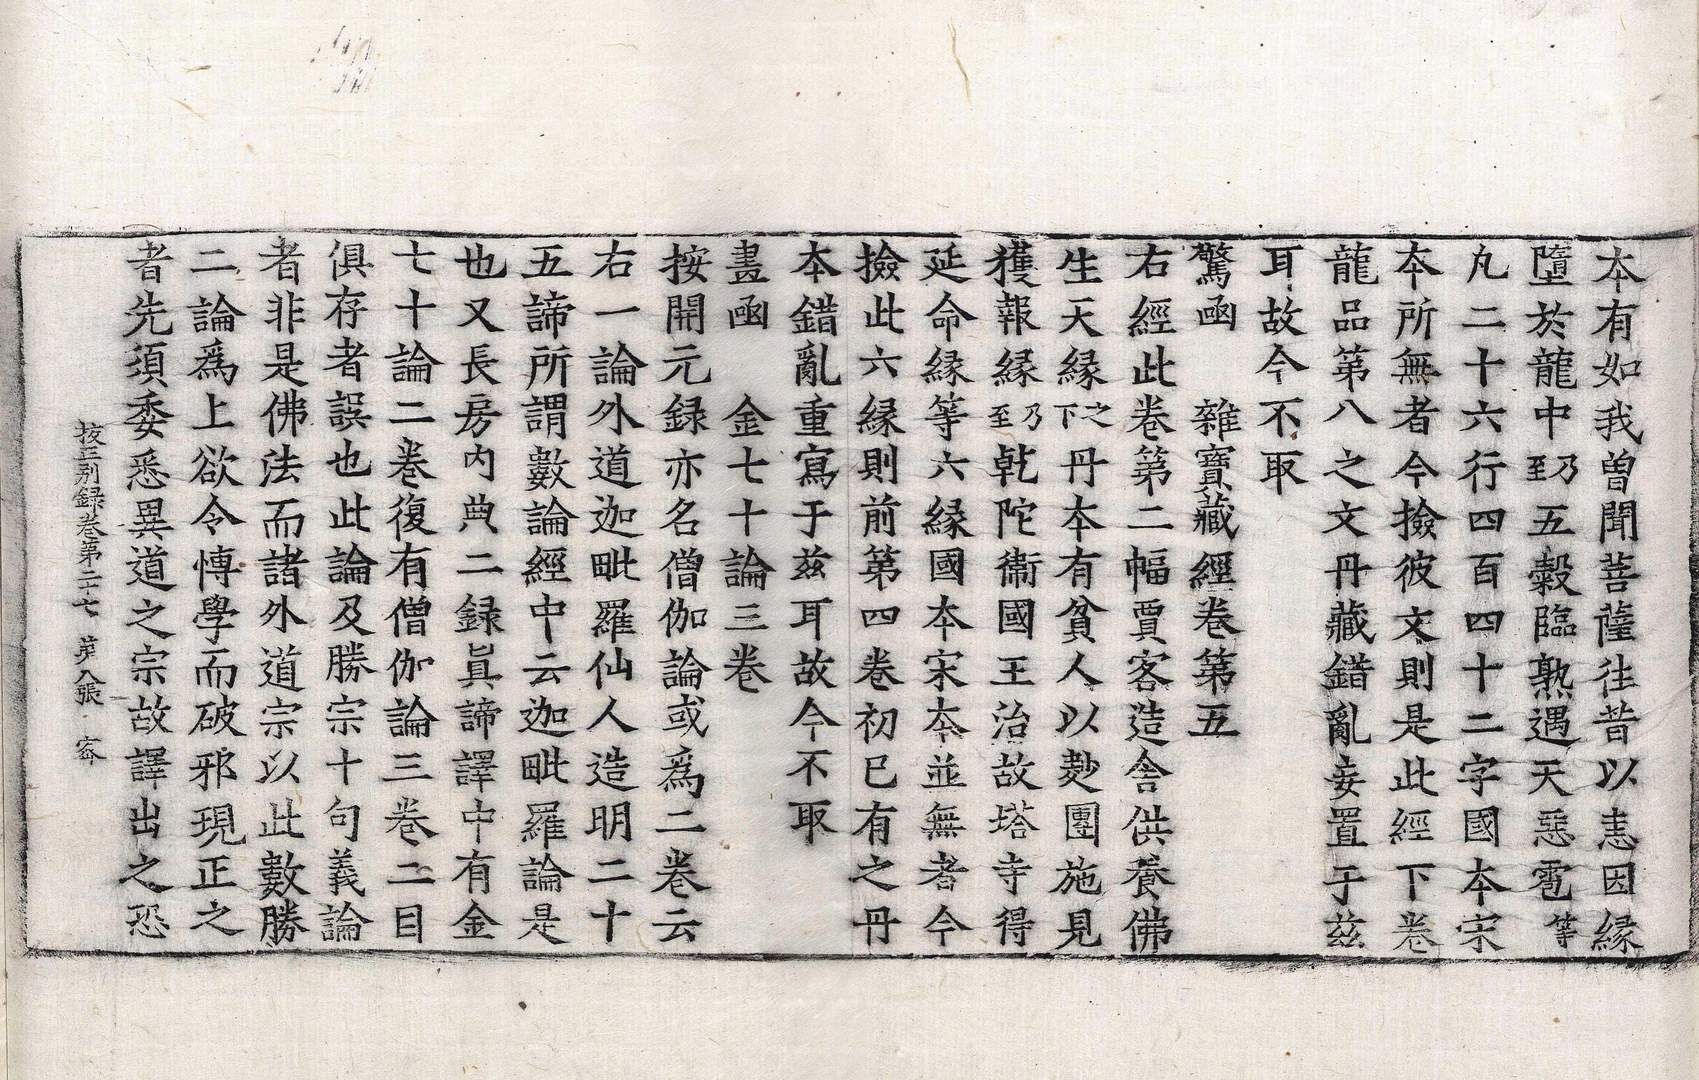 本有如我曾聞菩薩往昔以恚因縁
墮於龍中乃至五糓臨熟遇天惡雹等
凡二十六行四百四十二字國本宋
本所無者今撿彼文則是此經下卷
龍品第八之文丹藏錯亂妄置于兹
耳故今不取
驚函　雜寶藏經卷第五
右經此卷第二幅賈客造舍供養佛
生天縁之下丹本有貧人以麨團施見
獲報縁乃至乹陀衛國王治故塔寺得
延命縁等六縁國本宋本並無者今
撿此六縁則前第四卷初已有之丹
本錯亂重寫于兹耳故今不取
晝函　金七十論三卷
按開元録亦名僧伽論或爲二卷云
右一論外道迦毗羅仙人造明二十
五諦所謂數論經中云迦毗羅論是
也又長房内典二録眞諦譯中有金
七十論二卷復有僧伽論三卷二目
俱存者誤也此論及勝宗十句義論
者非是佛法而諸外道宗以此數勝
二論爲上欲令愽學而破邪現正之
者先須委悉異道之宗故譯出之恐
挍正別録卷第二十七　第八張　密